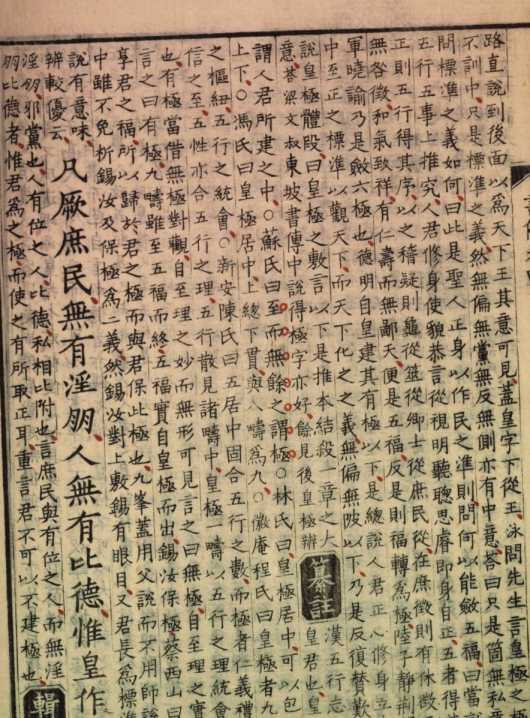 路直說到後面以爲天下王其意可見蓋皇字下從王○泳問先生言皇極之極
不訓中只是標準之義然無偏無黨無反無側亦有中意荅曰只是箇無私意
問標準之義如何曰此是聖人正身以作民之準則問何以能斂五福曰當
五行五事上推究人君修身使貌恭言從視明聽聰思睿即身自正五者得
正則五行得其序以之稽疑則龜從筮從卿士從庶民從在庶徵則有休徵
無咎徵和氣致祥有仁壽而無鄙夭便是五福反是則福轉爲極陸子靜荆
軍曉諭乃是斂六極也德明自皇建其有極以下是總說人君正心修身立
中至正之標準以觀天下而天下化之之義無偏無陂以下乃是反復贊歎
說皇極體段曰皇極之敷言以下是推本結殺一章之大
意荅梁文叔東坡書傳中說得極字亦好餘見後皇極辨
纂註
漢五行志
皇君也皇
謂人君所建之中○蘇氏曰至而無餘之謂極○林氏曰皇極居中可以包
上下○馮氏曰皇極居中上總下貫與八疇爲九○徽庵程氏曰皇極者九
之樞紐五行之統會○新安陳氏曰五居中固合五行之數而極者仁義禮
信之至五性亦合五行之理五行散見諸疇中皇極一疇以五行之理統會
也有極當借無極對觀自至理之妙而無形可見言之曰無極自至理之實
言之曰有極九疇雖至五福而終五福實自皇極而出錫汝保極蔡西山曰
享君之福所以歸於君之極而與君保此極也九峯蓋用父說而不用師說
中雖不免析錫汝及保極爲二義然錫汝對上敷錫有眼目又君長爲標準
說有意味
辨較優云
凡厥庶民無有淫朋人無有比德惟皇作
淫朋邪黨也人有位之人比德私相比附也言庶民與有位之人而無淫
朋比德者惟君爲之極而使之有所取正耳重言君不可以不建極也
輯